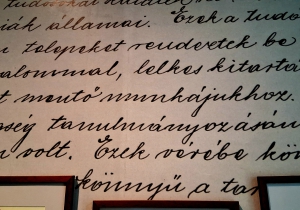 iák államai. Ezek a tudo
telepeket rendeztek be
alommal, lelkes kitartá
t mentő munkájukhoz.
ség tanulmányozásán
volt. Ezek vérébe kön
könnyű a tar